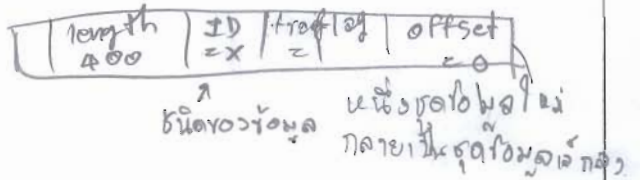 length ID fragflag offset
400 =X = =0
ชนิดของข้อมูล หนึ่งชุดข้อมูลใหญ่
กลายเป็นชุดข้อมูลเล็กลง